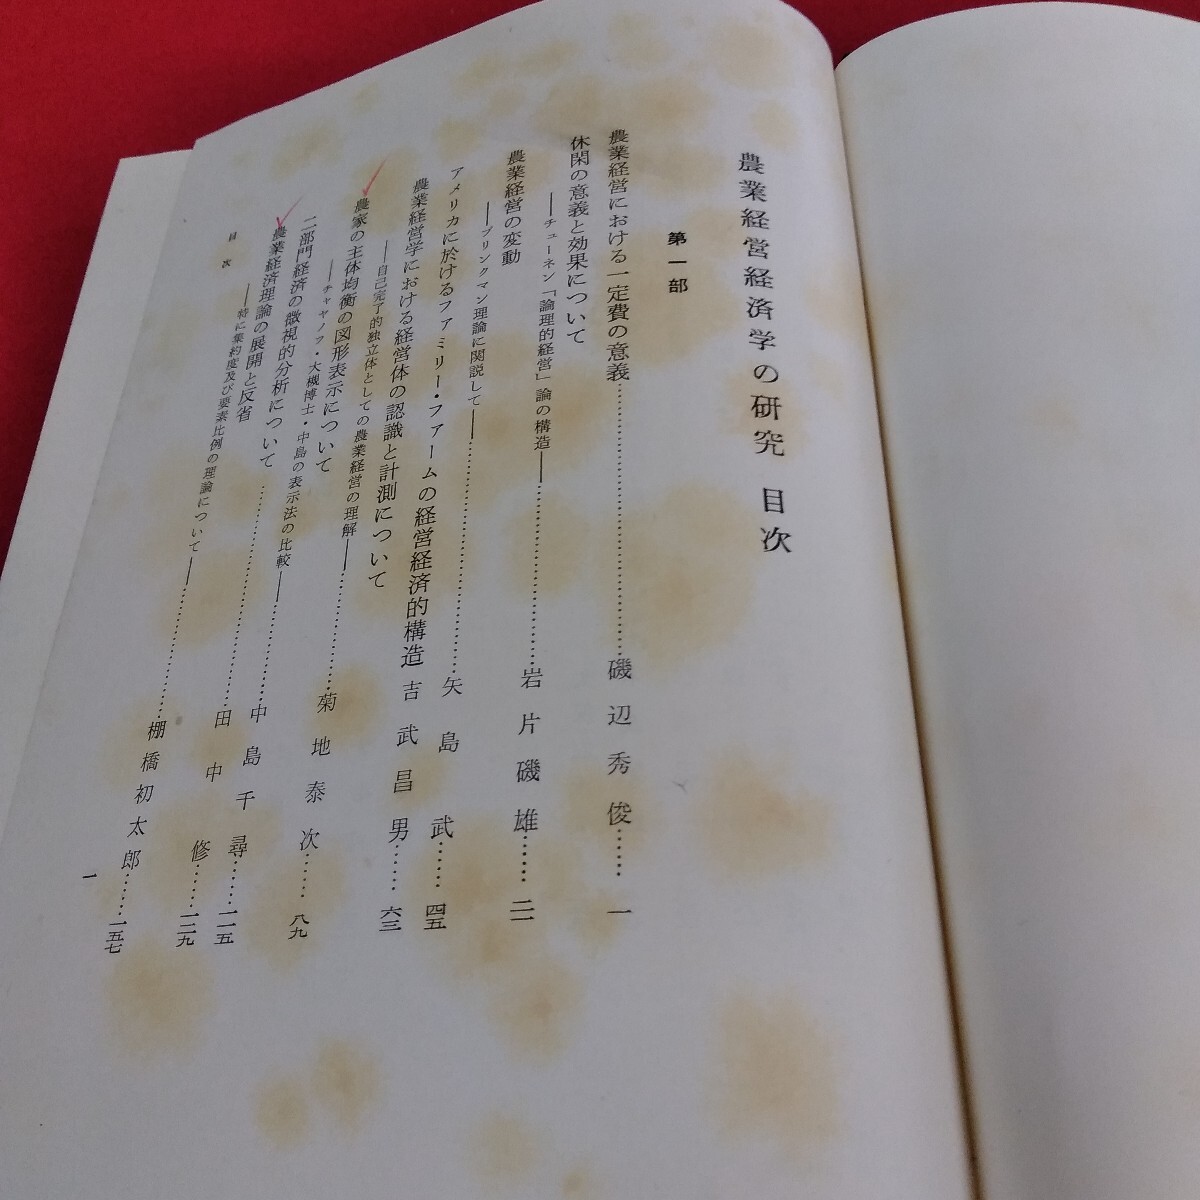 農業経営経済学の研究 目次
第一部
農業経営における一定費の意義……………………磯辺秀俊……一
休閑の意義と効果について
――チューネン「論理的経営」論の構造――……………………岩片磯雄……二一
農業経営の変動
――ブリンクマン理論に関説して――……………………矢島武……四五
アメリカに於けるファミリー・ファームの経営経済的構造 吉武昌男……六三
農業経営学における経営体の認識と計測について
――自己完了的独立体としての農業経営の理解――……………………菊地泰次……八九
農家の主体均衡の図形表示について
――チャヤノフ・大槻博士・中島の表示法の比較――……………………中島千尋……一一五
二部門経済の微視的分析について……………………田中修……一二九
農業経済理論の展開と反省
――特に集約度及び要素比例の理論について――……………………棚橋初太郎……一五七
目次
一